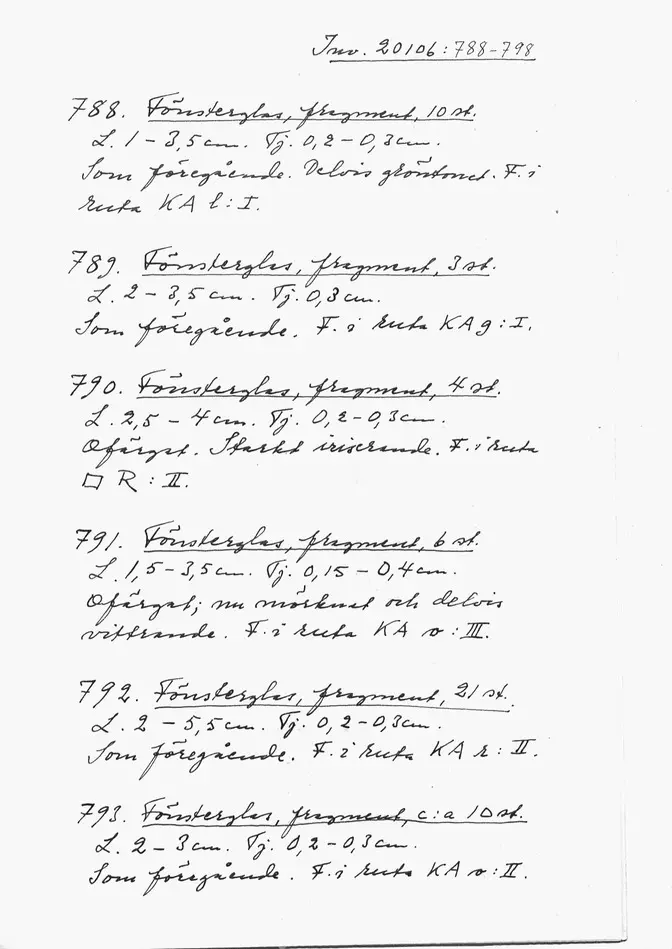 Inv. 20106:788-798
788. Fönsterglas, fragment, 10 st.
L. 1 – 3,5 cm. Tj. 0,2 – 0,3 cm.
Som föregående. Delvis gröntonat. F. i
ruta KA l : I.
789. Fönsterglas, fragment, 3 st.
L. 2 – 3,5 cm. Tj. 0,3 cm.
Som föregående. F. i ruta KA g : I.
790. Fönsterglas, fragment, 4 st.
L. 2,5 – 4 cm. Tj. 0,2-0,3 cm.
Ofärgat. Starkt iriserande. F. i ruta
□ R : II.
791. Fönsterglas, fragment, 6 st.
L. 1,5 – 3,5 cm. Tj. 0,15 – 0,4 cm.
Ofärgat; nu mörknat och delvis
vittrande. F. i ruta KA o : III.
792. Fönsterglas, fragment, 21 st.
L. 2 – 5,5 cm. Tj. 0,2-0,3 cm.
Som föregående. F. i ruta KA r : II.
793. Fönsterglas, fragment, c:a 10 st.
L. 2 – 3 cm. Tj. 0,2 – 0,3 cm.
Som föregående. F. i ruta KA o : II.